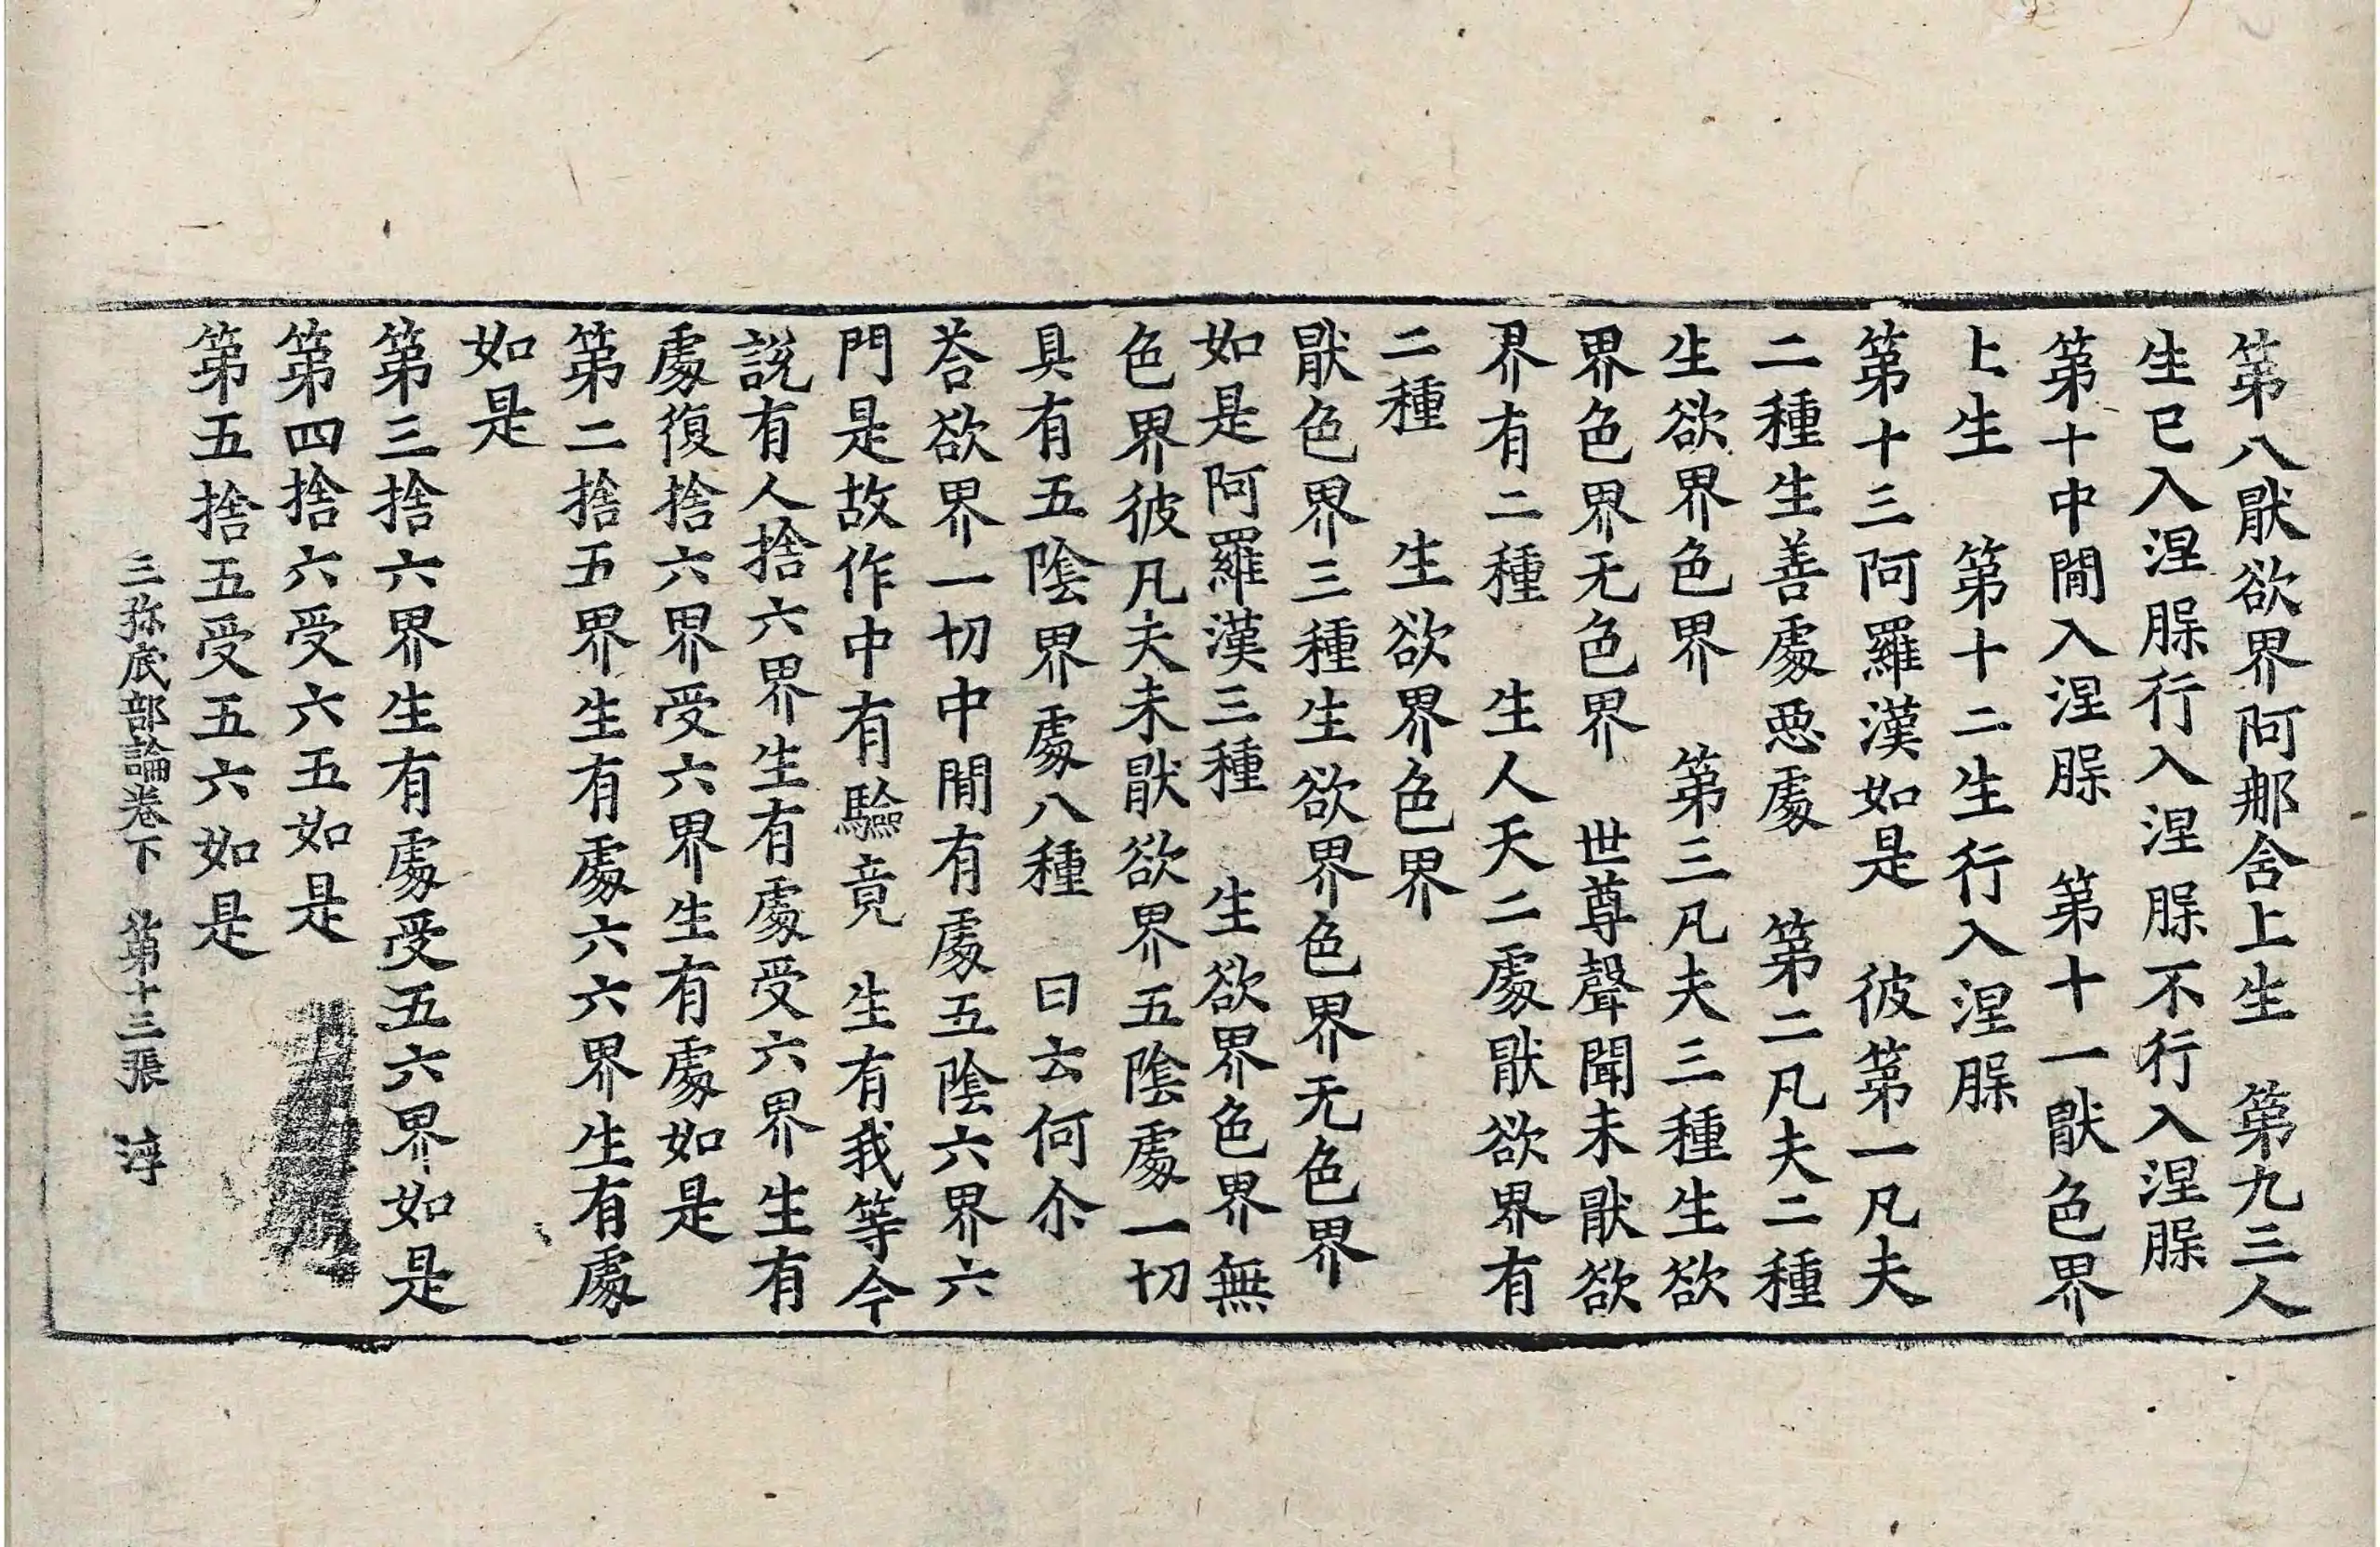 第八猒欲界阿那舍上生　第九三人
生已入涅𦜮行入涅𦜮不行入涅𦜮
第十中閒入涅𦜮　第十一猒色界
上生　第十二生行入涅𦜮
第十三阿羅漢如是　彼第一凡夫
二種生善處惡處　第二凡夫二種
生欲界色界　第三凡夫三種生欲
界色界无色界　世尊聲聞未猒欲
界有二種　生人天二處猒欲界有
二種　生欲界色界
猒色界三種生欲界色界无色界
如是阿羅漢三種　生欲界色界無
色界彼凡夫未猒欲界五陰處一切
具有五陰界處八種　曰云何尒
荅欲界一切中閒有處五陰六界六
門是故作中有驗竟　生有我等今
說有人捨六界生有處受六界生有
處復捨六界受六界生有處如是
第二捨五界生有處六六界生有處
如是
第三捨六界生有處受五六界如是
第四捨六受六五如是
第五捨五受五六如是
三弥底部論卷下　第十三張　淳